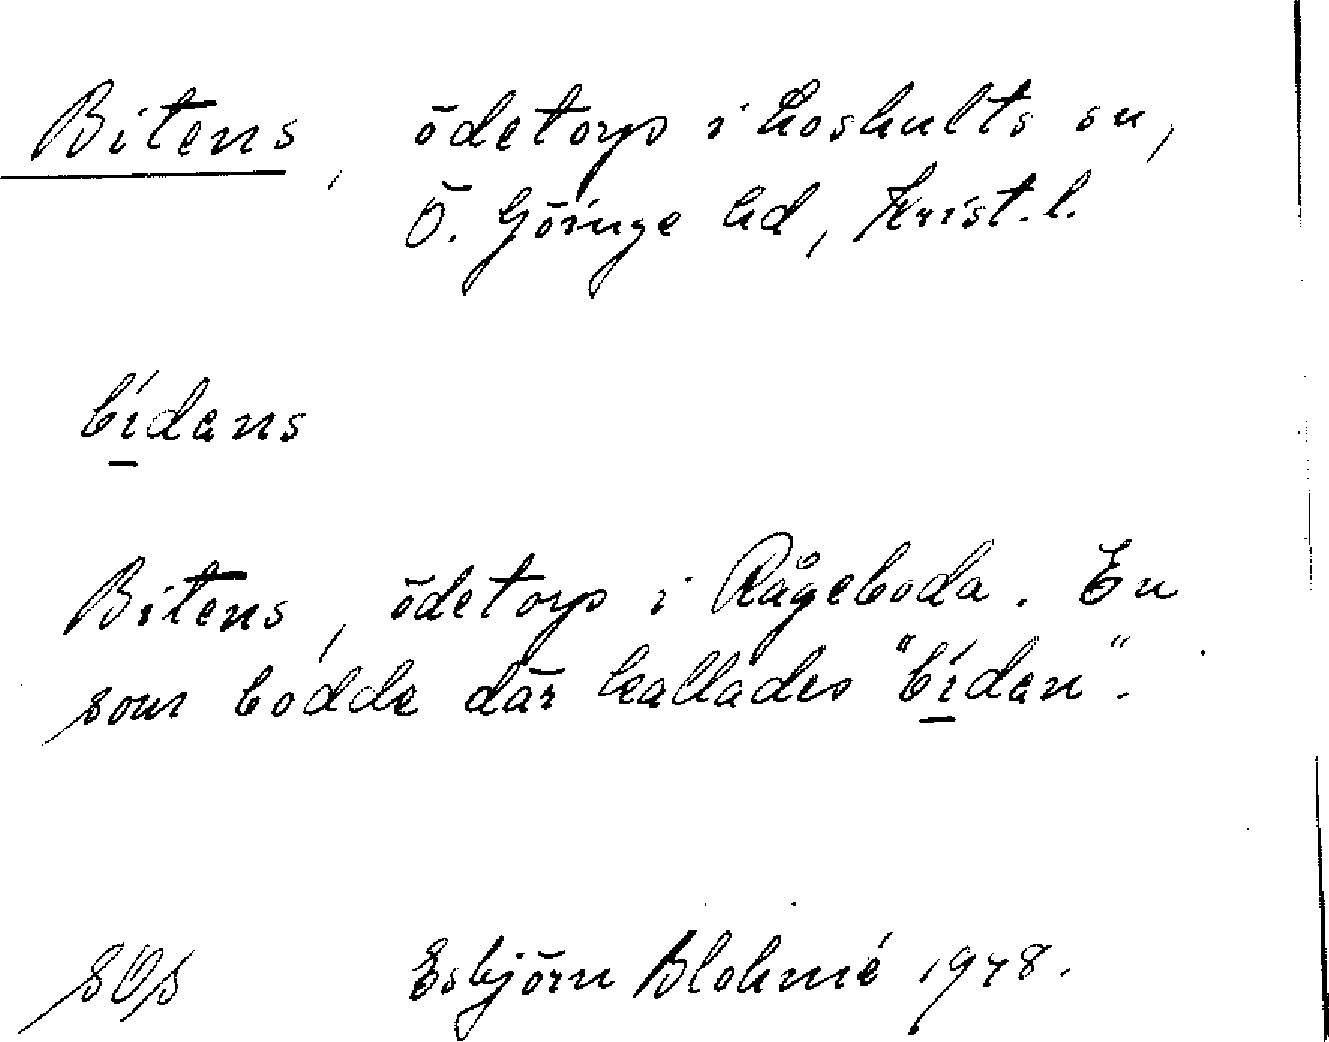 Bitens, ödetorp i Loshults sn,
Ö. Göinge hd, Krist. l.
bídens
Bitens, ödetorp i Rågeboda. En
som bodde där kallades "bíden".
SOS Esbjörn Blohmé 1948.